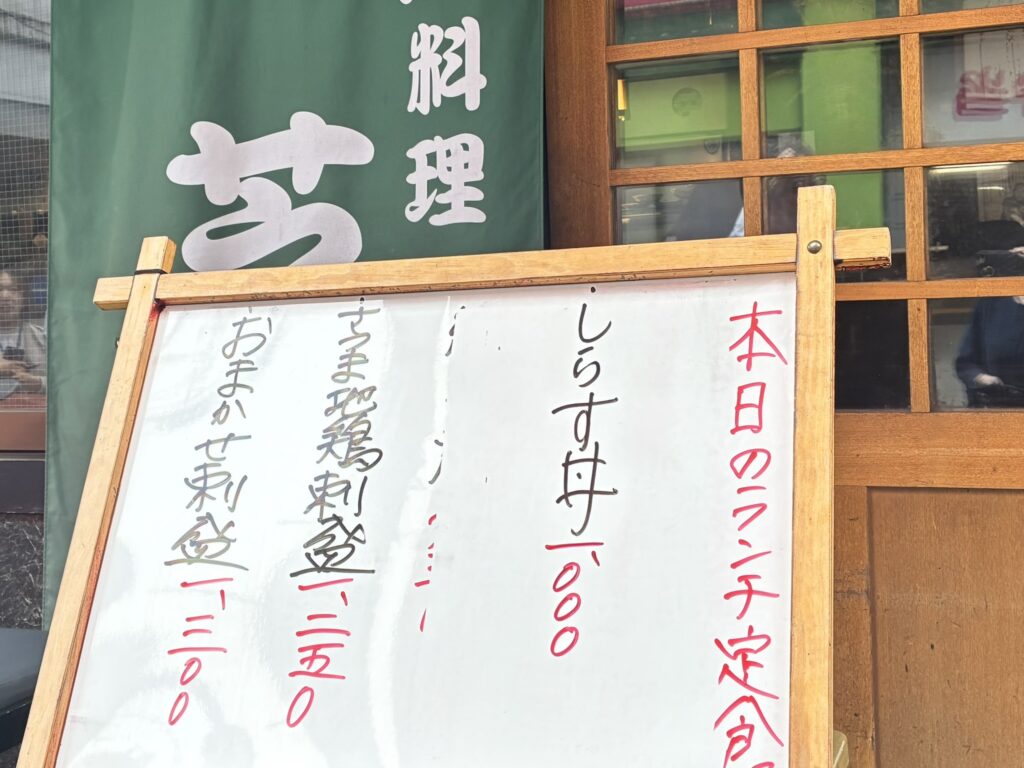 料理
本日のランチ定食
・しらす丼 一、〇〇〇
・さつま地鶏刺盛 一、二五〇
・おまかせ刺盛 一、三〇〇